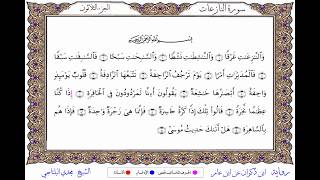 سورة النازعات الجزء الثلاثون
بِسْمِ اللَّهِ الرَّحْمَٰنِ الرَّحِيمِ
وَالنَّٰزِعَٰتِ غَرْقًا ① وَالنَّٰشِطَٰتِ نَشْطًا ② وَالسَّٰبِحَٰتِ سَبْحًا ③ فَالسَّٰبِقَٰتِ سَبْقًا
④ فَالْمُدَبِّرَٰتِ أَمْرًا ⑤ يَوْمَ تَرْجُفُ الرَّاجِفَةُ ⑥ تَتْبَعُهَا الرَّادِفَةُ ⑦ قُلُوبٌ يَوْمَئِذٍ
وَاجِفَةٌ ⑧ أَبْصَٰرُهَا خَٰشِعَةٌ ⑨ يَقُولُونَ أَءِنَّا لَمَرْدُودُونَ فِي الْحَافِرَةِ ⑩ إِذَا كُنَّا
عِظَٰمًا نَّخِرَةً ⑪ قَالُوا تِلْكَ إِذًا كَرَّةٌ خَاسِرَةٌ ⑫ فَإِنَّمَا هِيَ زَجْرَةٌ وَٰحِدَةٌ ⑬ فَإِذَا هُم
بِالسَّاهِرَةِ ⑭ هَلْ أَتَىٰكَ حَدِيثُ مُوسَىٰ
رواية ابن ذكوان عن ابن عامر الشيخ مجدي